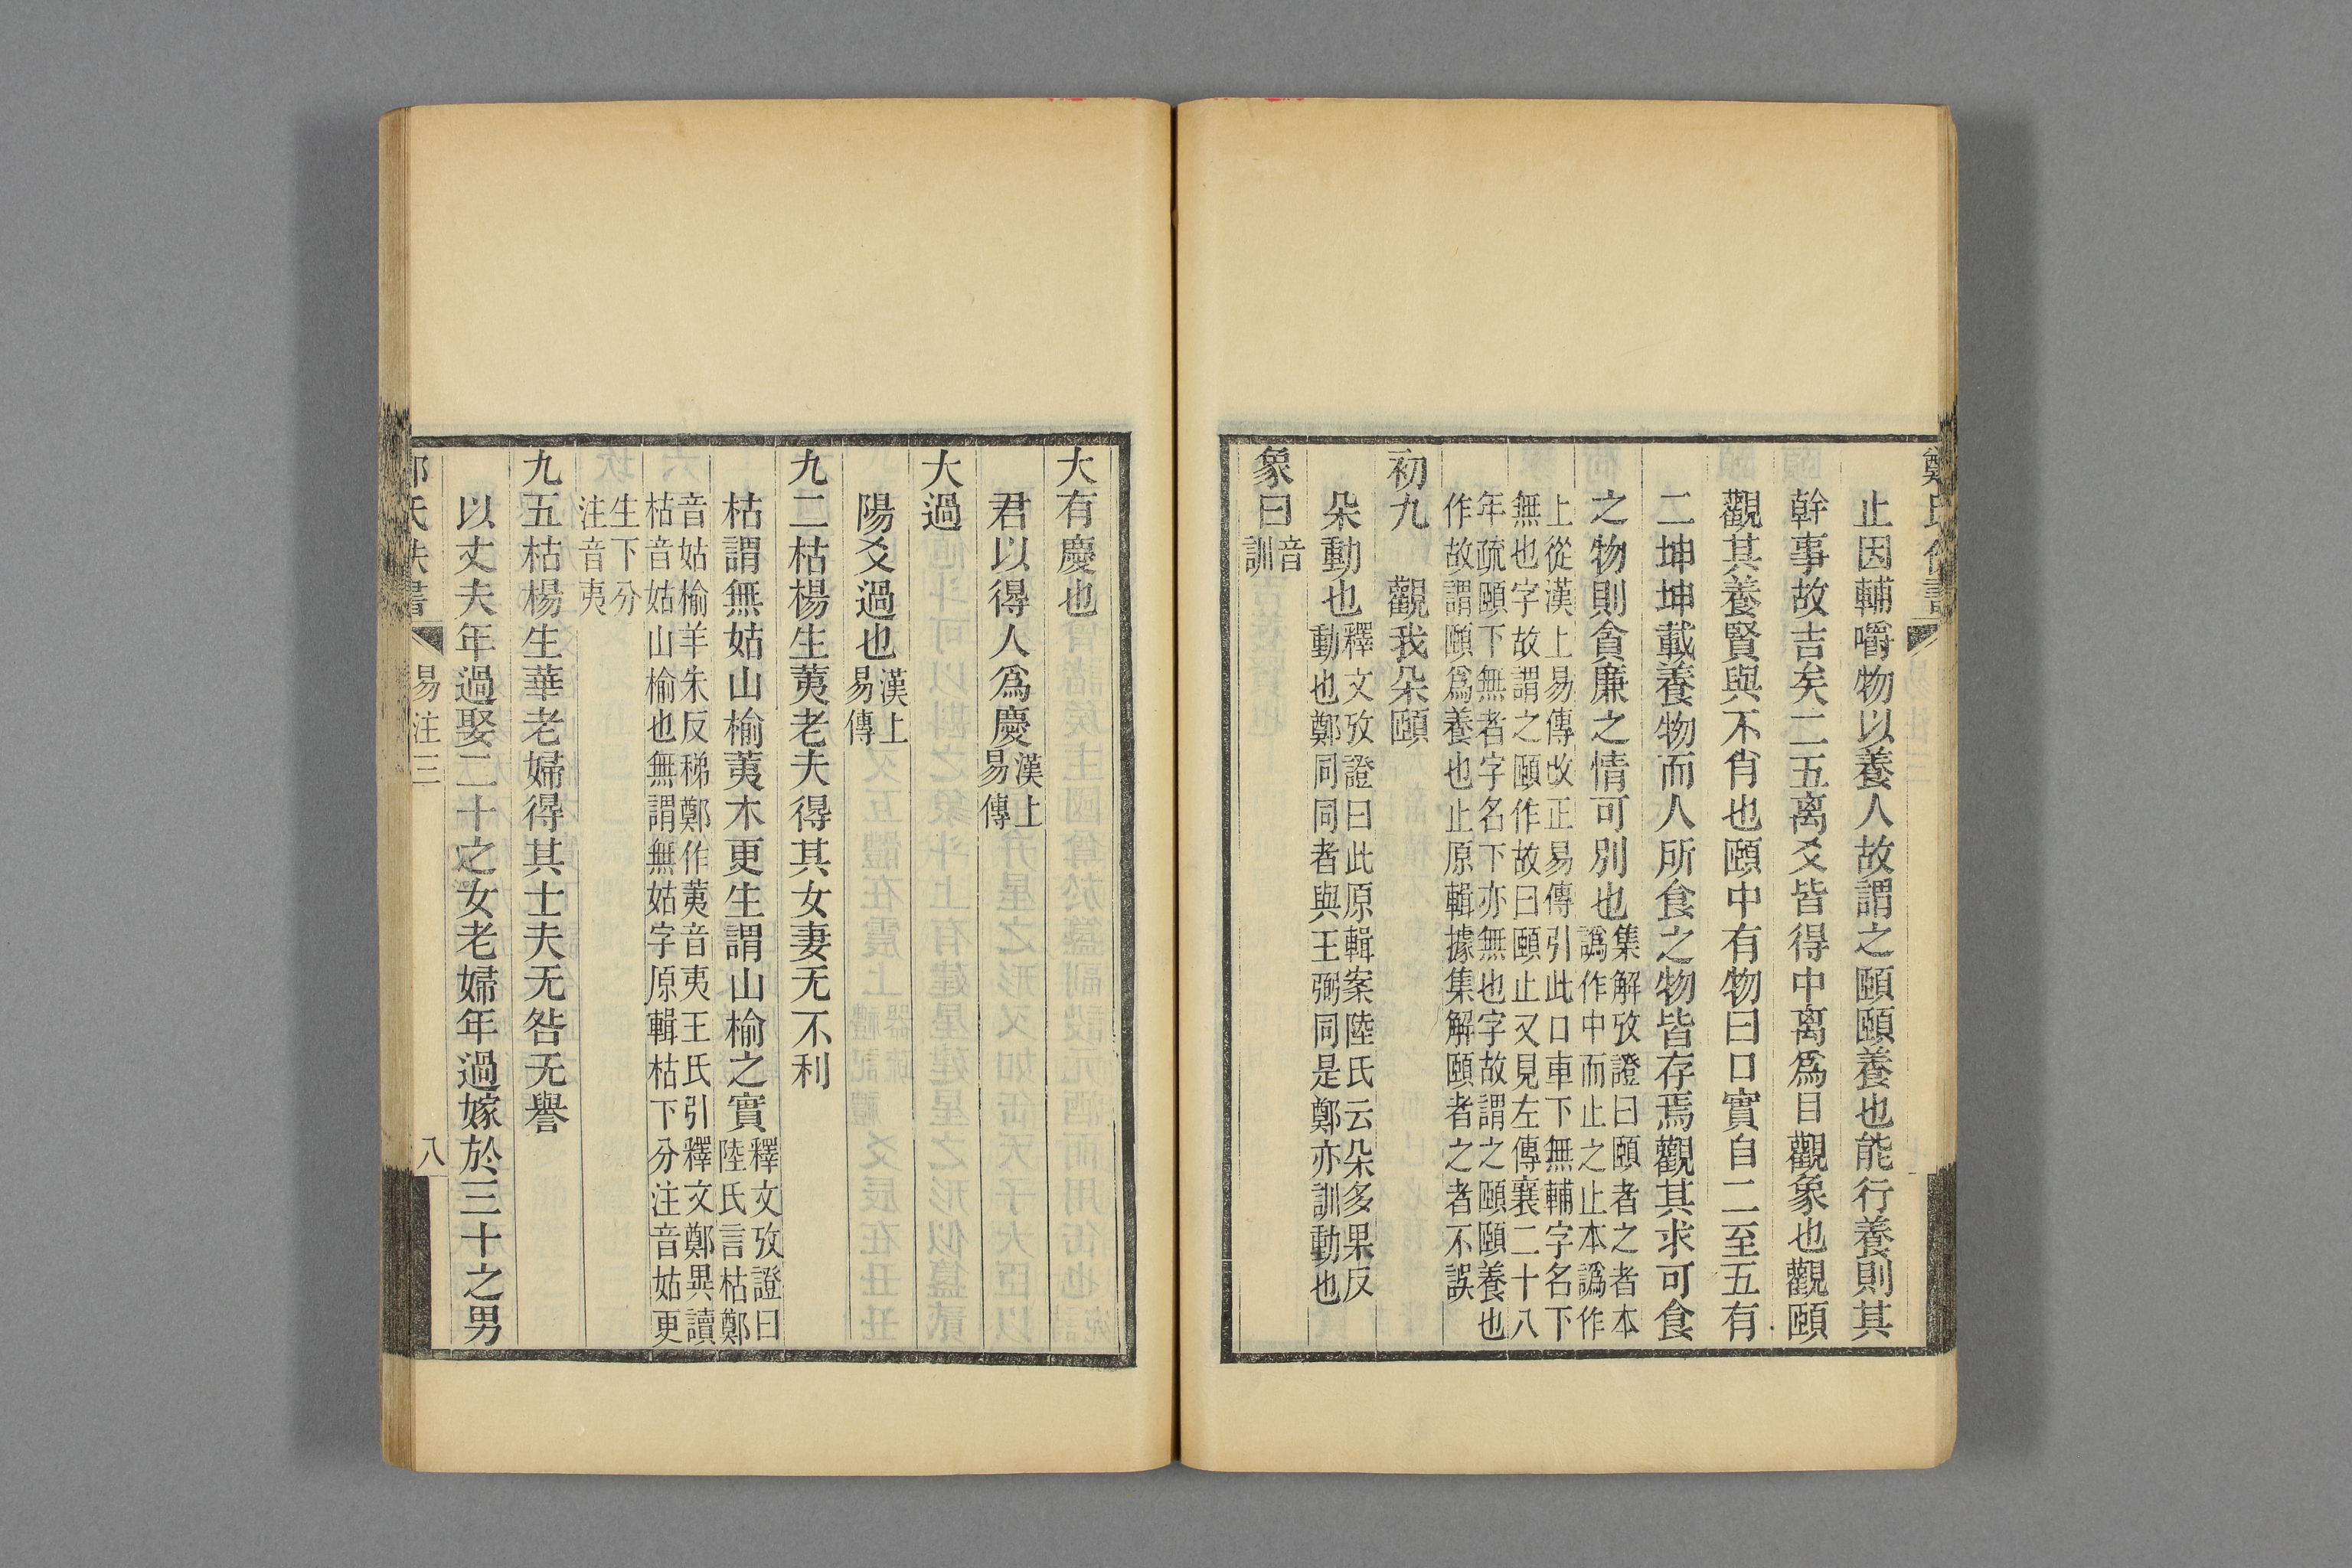 止因輔嚼物以養人故謂之頤頤養也能行養則其
幹事故吉矣二五离爻皆得中离爲目觀象也觀頤
觀其養賢與不肖也頤中有物曰口實自二至五有
二坤坤載養物而人所食之物皆存焉觀其求可食
之物則貪廉之情可別也
集解攷證曰頤者之者本
譌作中而止之止本譌作
上從漢上易傳改正易傳引此口車下無輔字名下
無也字故謂之頤作故曰頤止又見左傳襄二十八
年疏頤下無者字名下亦無也字故謂之頤頤養也
作故謂頤爲養也止原輯據集解頤者之者不誤
初九 觀我朵頤
朵動也
釋文攷證曰此原輯案陸氏云朵多果反
動也鄭同同者與王弼同是鄭亦訓動也
象曰
音
訓
大有慶也
君以得人爲慶
漢上
易傳
大過
陽爻過也
漢上
易傳
九二枯楊生荑老夫得其女妻无不利
枯謂無姑山榆荑木更生謂山榆之實
釋文攷證曰
陸氏言枯鄭
音姑榆羊朱反稊鄭作荑音夷王氏引釋文鄭異讀
枯音姑山榆也無謂無姑字原輯枯下分注音姑更
生下分
注音夷
九五枯楊生華老婦得其士夫无咎无譽
以丈夫年過娶二十之女老婦年過嫁於三十之男
易注三
八